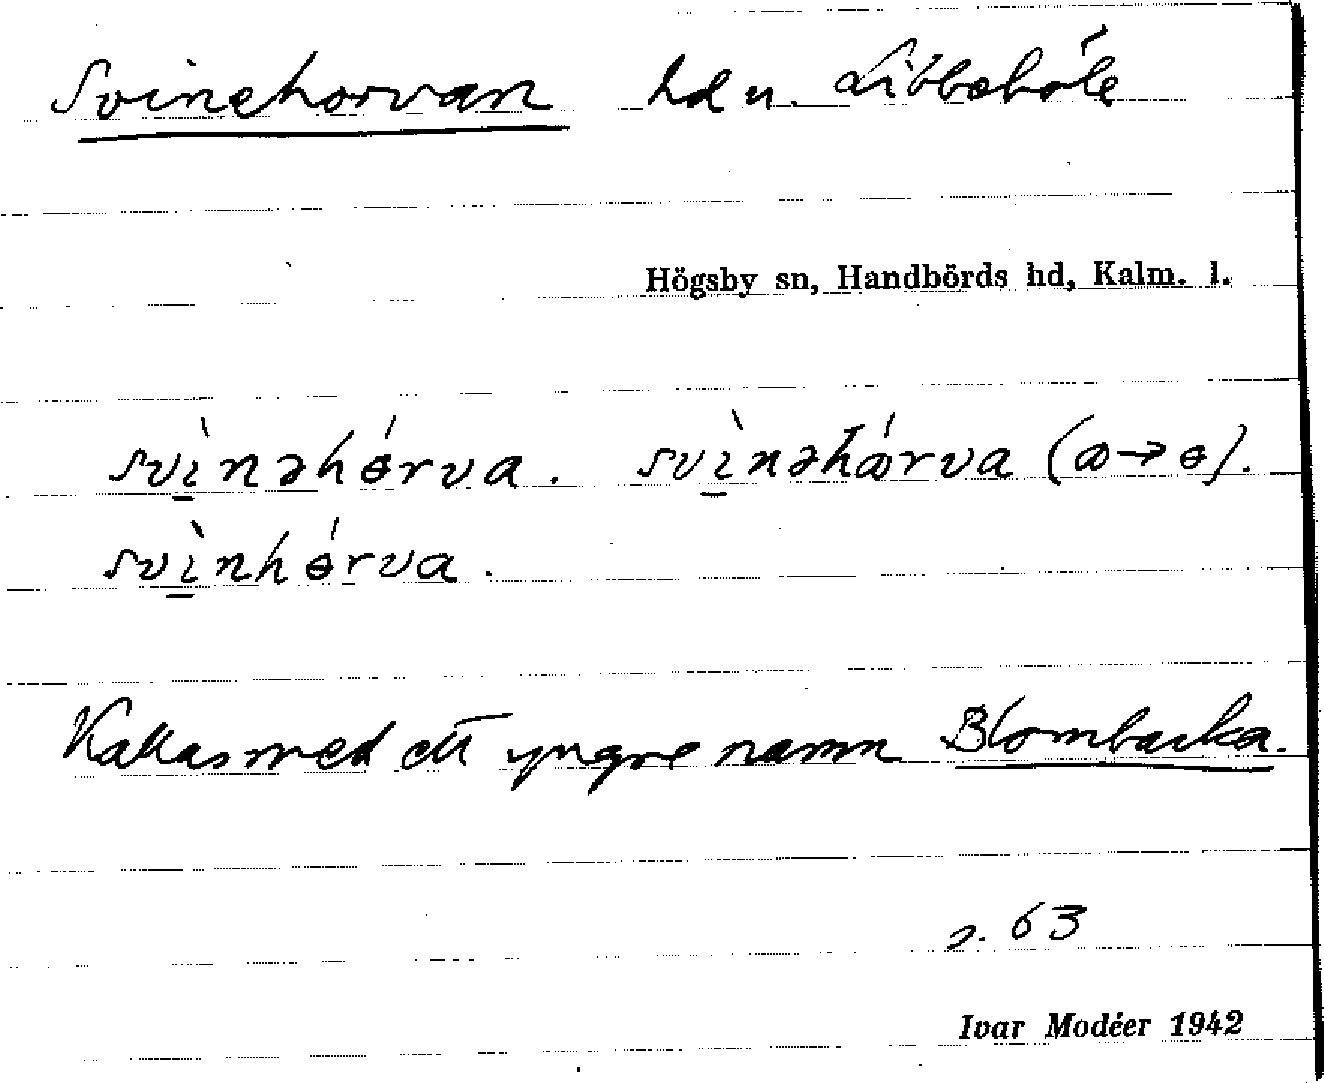 Svinehorvan hd u. Libbeböle
Högsby sn, Handbörds hd, Kalm. l.
svı̱̀nəhɵ́rva. svı̱̀nəhꝏ́rva (ꝏ→ɵ).
svı̱̀nhɵ́rva.
Kallas med ett yngre namn Blombacka.
s. 63
Ivar Modéer 1942